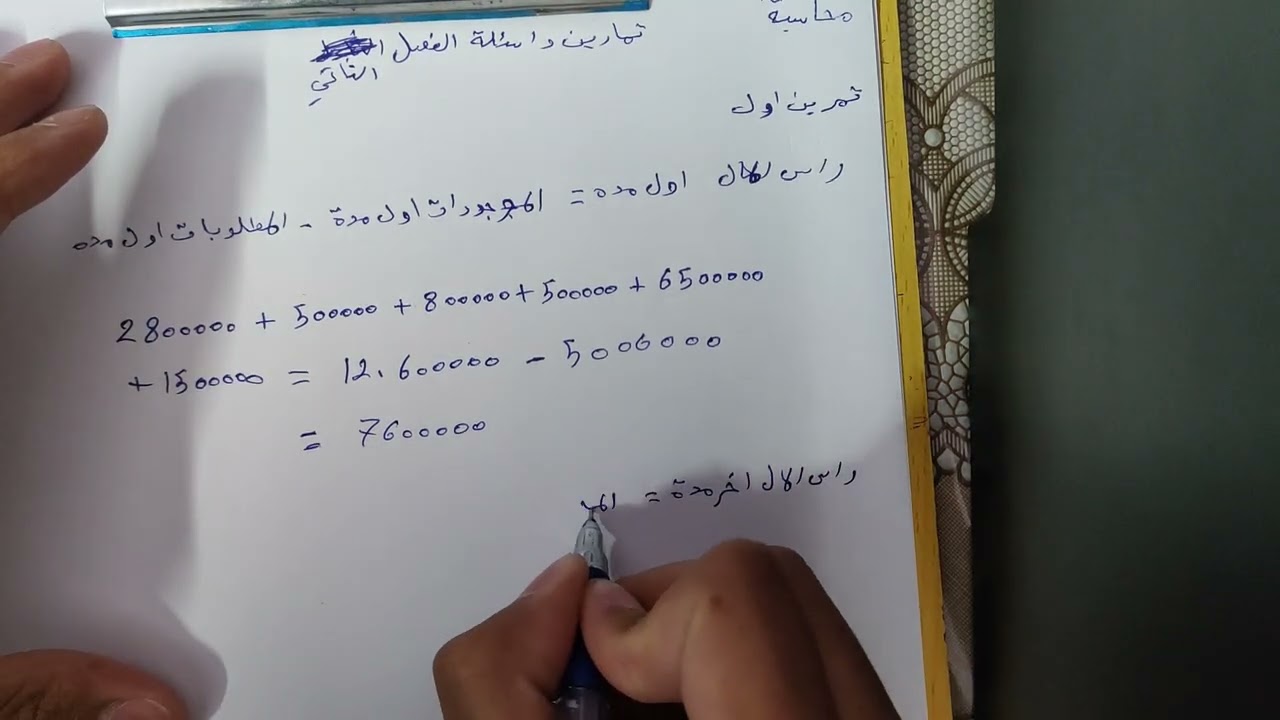 محاسبه
تمارين واسئلة الفصل
الثاني
تمرين اول
راس المال اول مده = الموجودات اول مدة - المطلوبات اول مده
2800000 + 500000 + 800000 + 500000 + 6500000
+ 1500000 = 12.600000 - 5000000
= 7600000
راس المال اخر مدة = المو